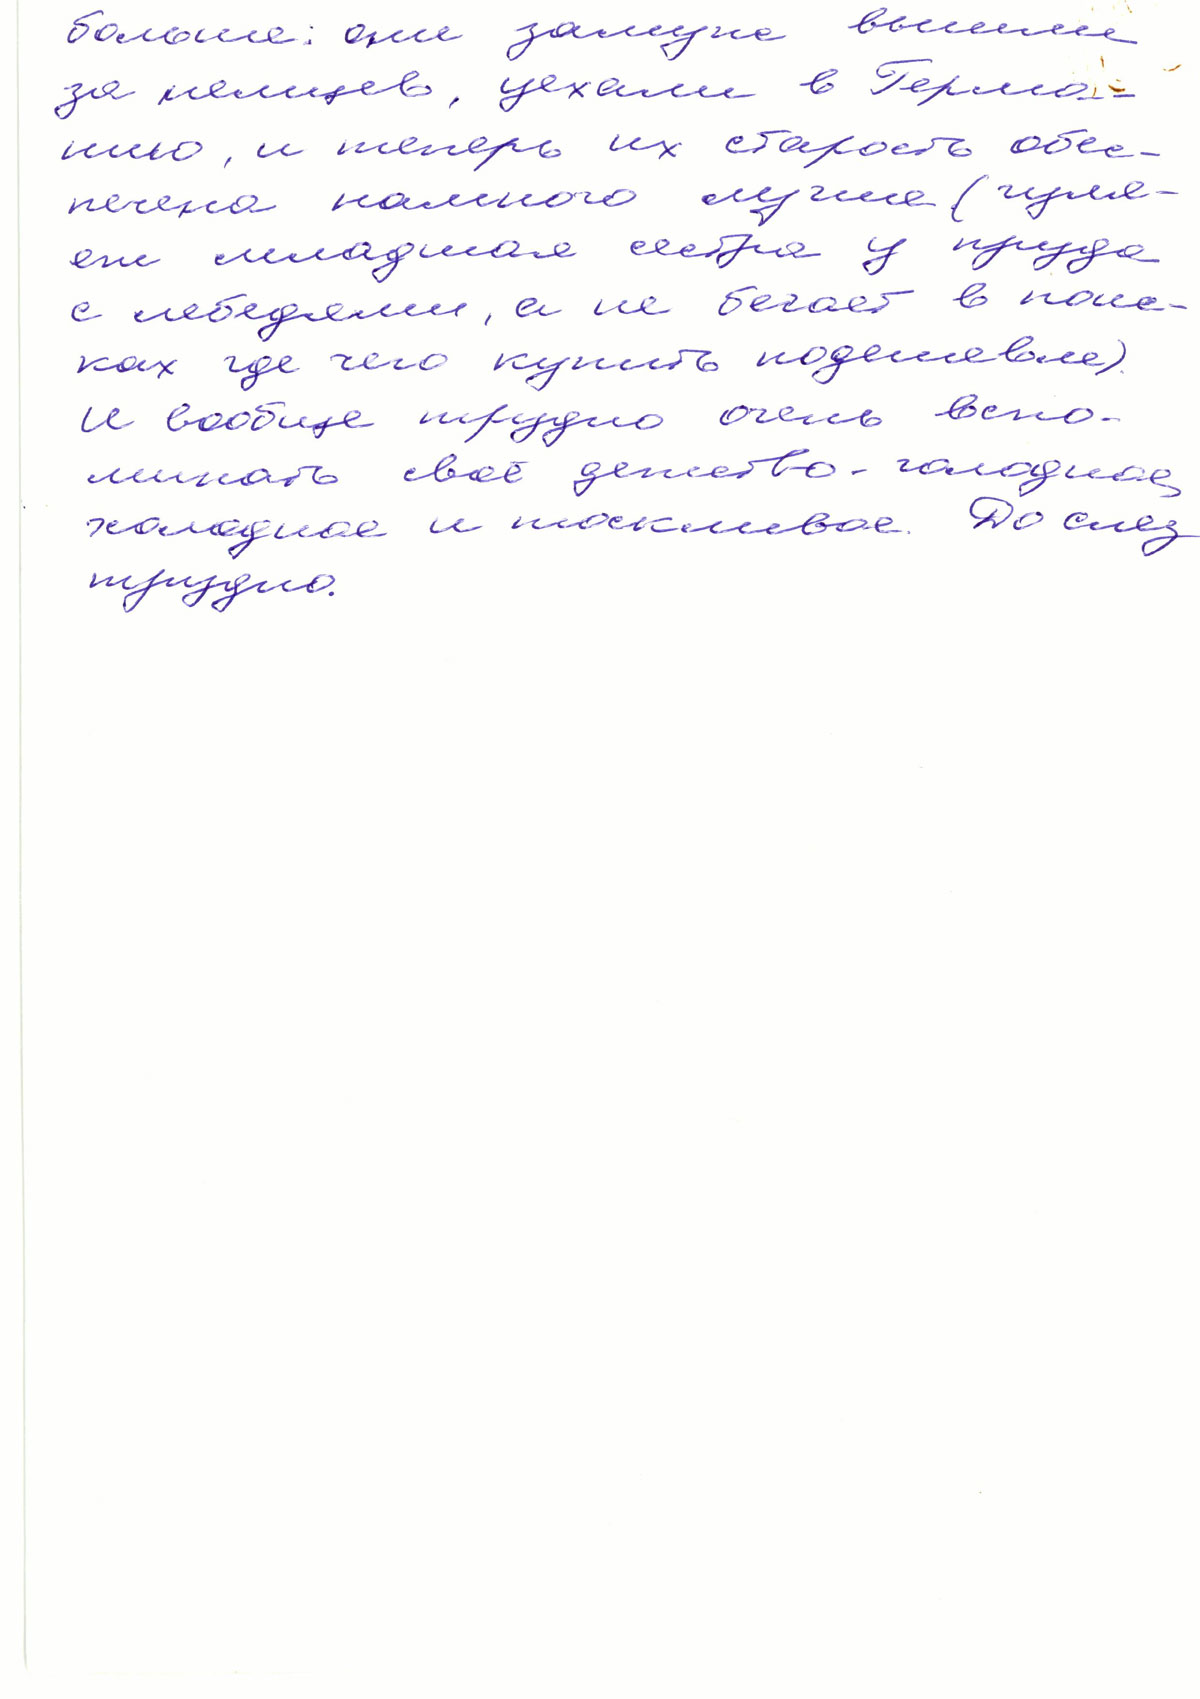 больше: они замуж вышли
за немцев, уехали в Герма-
нию, и теперь их старость обес-
печена намного лучше (гуля-
ет младшая сестра у пруда
с лебедями, а не бегает в поис-
ках где чего купить подешевле).
И вообще трудно очень вспо-
минать своё детство - голодное,
холодное и тоскливое. До слез
трудно.